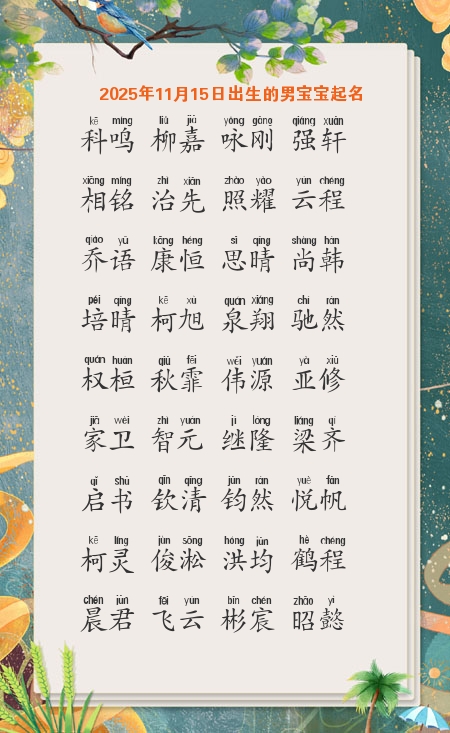 2025年11月15日出生的男宝宝起名
kē míng liǔ jiā yǒng gāng qiáng xuān
科鸣 柳嘉 咏刚 强轩
xiāng míng zhì xiān zhào yào yún chéng
相铭 治先 照耀 云程
qiáo yǔ kāng héng sī qíng shàng hán
乔语 康恒 思晴 尚韩
péi qíng kē xù quán xiáng chí rán
培晴 柯旭 泉翔 驰然
quán huán qiū fēi wěi yuán yà xiū
权桓 秋霏 伟源 亚修
jiā wèi zhì yuán jì lóng liáng qí
家卫 智元 继隆 梁齐
qǐ shū qīn qīng jūn rán yuè fān
启书 钦清 钧然 悦帆
kē líng jùn sōng hóng jūn hè chéng
柯灵 俊淞 洪均 鹤程
chén jūn fēi yún bīn chén zhāo yì
晨君 飞云 彬宸 昭懿